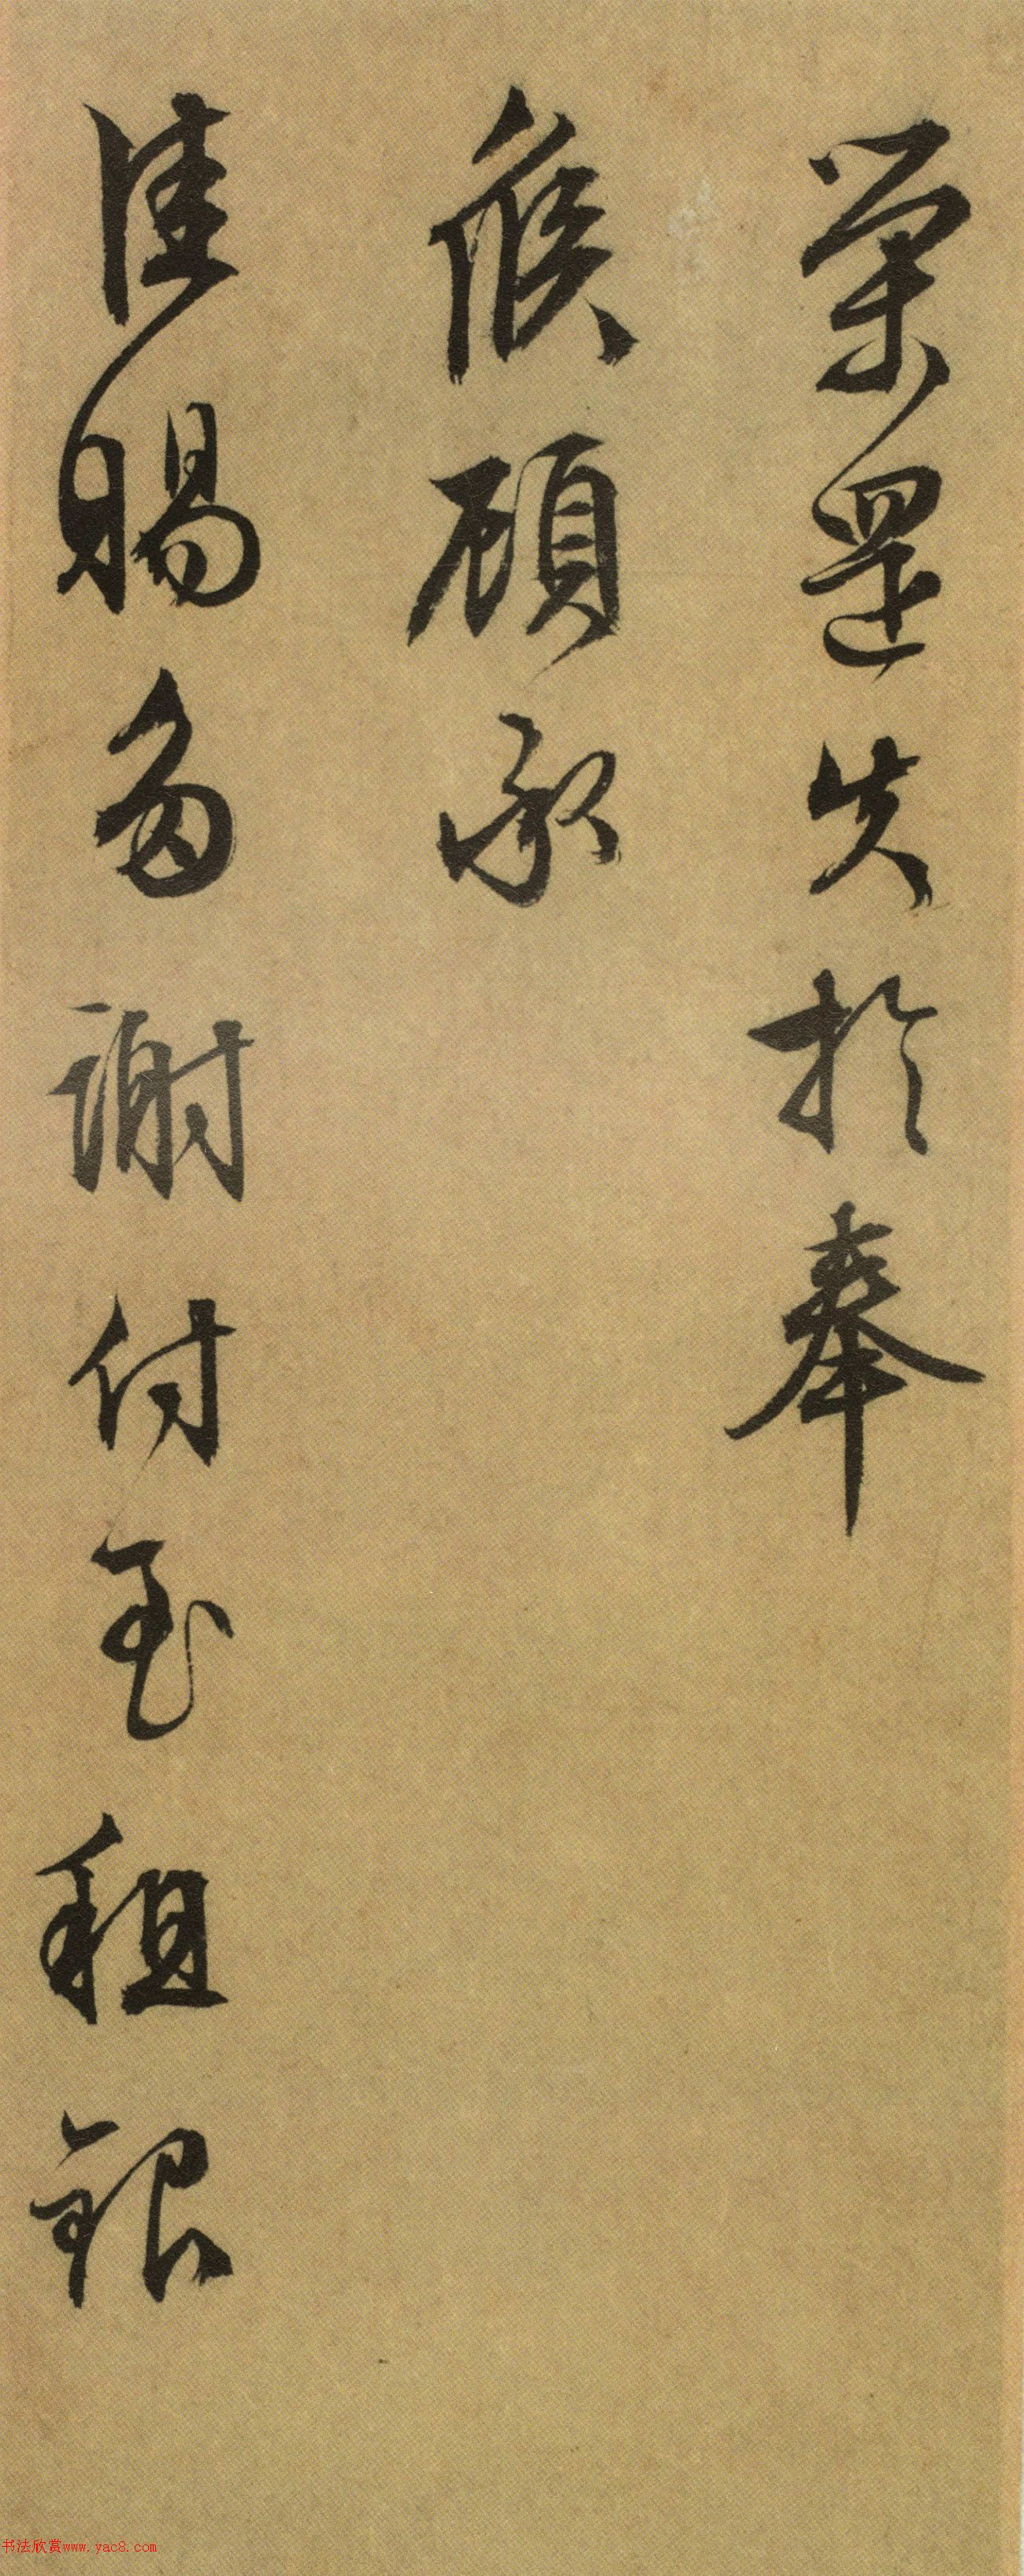 榮還失於奉
候顧承
佳賜多謝付至租銀
书法欣赏www.yac8.com